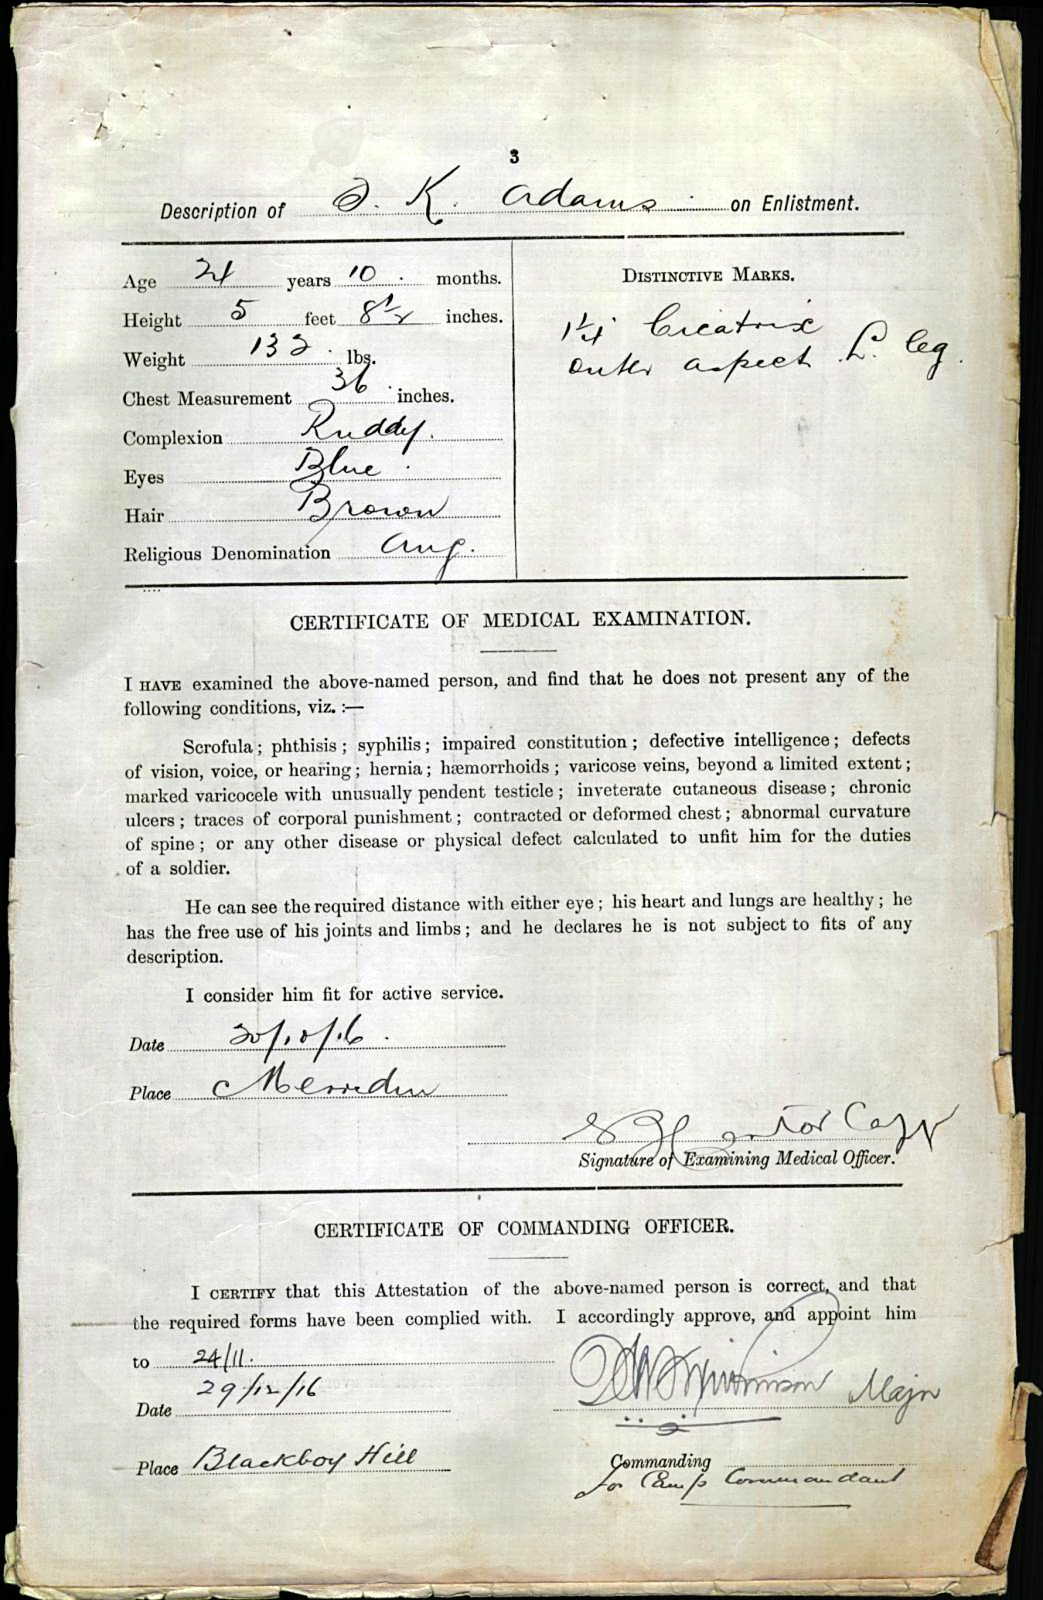 3
Description of J. K. Adams on Enlistment.
Age 21 years 10 months.
Height 5 feet 8½ inches.
Weight 132 lbs.
Chest Measurement 36 inches.
Complexion Ruddy.
Eyes Blue.
Hair Brown
Religious Denomination Ang.
DISTINCTIVE MARKS.
1¼ Cicatrix
outer aspect L. leg.
CERTIFICATE OF MEDICAL EXAMINATION.
I HAVE examined the above-named person, and find that he does not present any of the
following conditions, viz. :—
Scrofula; phthisis; syphilis; impaired constitution; defective intelligence; defects
of vision, voice, or hearing; hernia; hæmorrhoids; varicose veins, beyond a limited extent;
marked varicocele with unusually pendent testicle; inveterate cutaneous disease; chronic
ulcers; traces of corporal punishment; contracted or deformed chest; abnormal curvature
of spine; or any other disease or physical defect calculated to unfit him for the duties
of a soldier.
He can see the required distance with either eye; his heart and lungs are healthy; he
has the free use of his joints and limbs; and he declares he is not subject to fits of any
description.
I consider him fit for active service.
Date 20/10/16.
Place Merredin
Capt
Signature of Examining Medical Officer.
CERTIFICATE OF COMMANDING OFFICER.
I CERTIFY that this Attestation of the above-named person is correct, and that
the required forms have been complied with. I accordingly approve, and appoint him
to 24/11.
Date 29/12/16
Major
Place Blackboy Hill
Commanding
for Camp Commandant